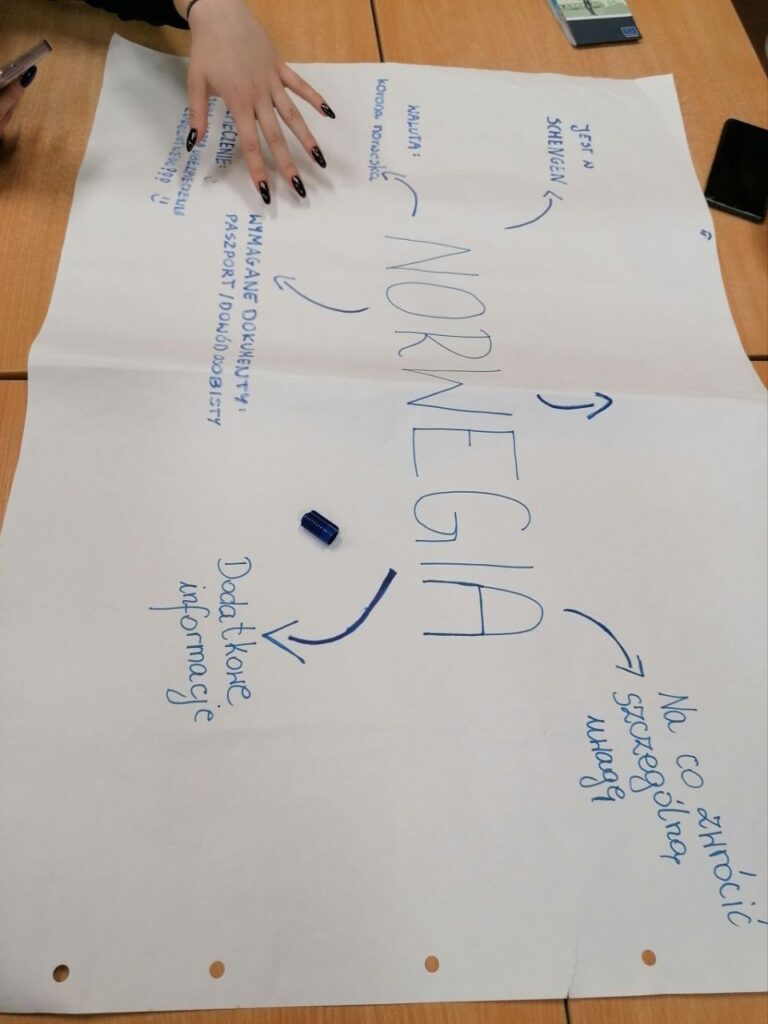 JEST W
SCHENGEN
WALUTA:
korona norweska
NORWEGIA
WYMAGANE DOKUMENTY:
PASZPORT / DOWÓD OSOBISTY
Na co zwrócić
szczególną
uwagę
Dodatkowe
informacje